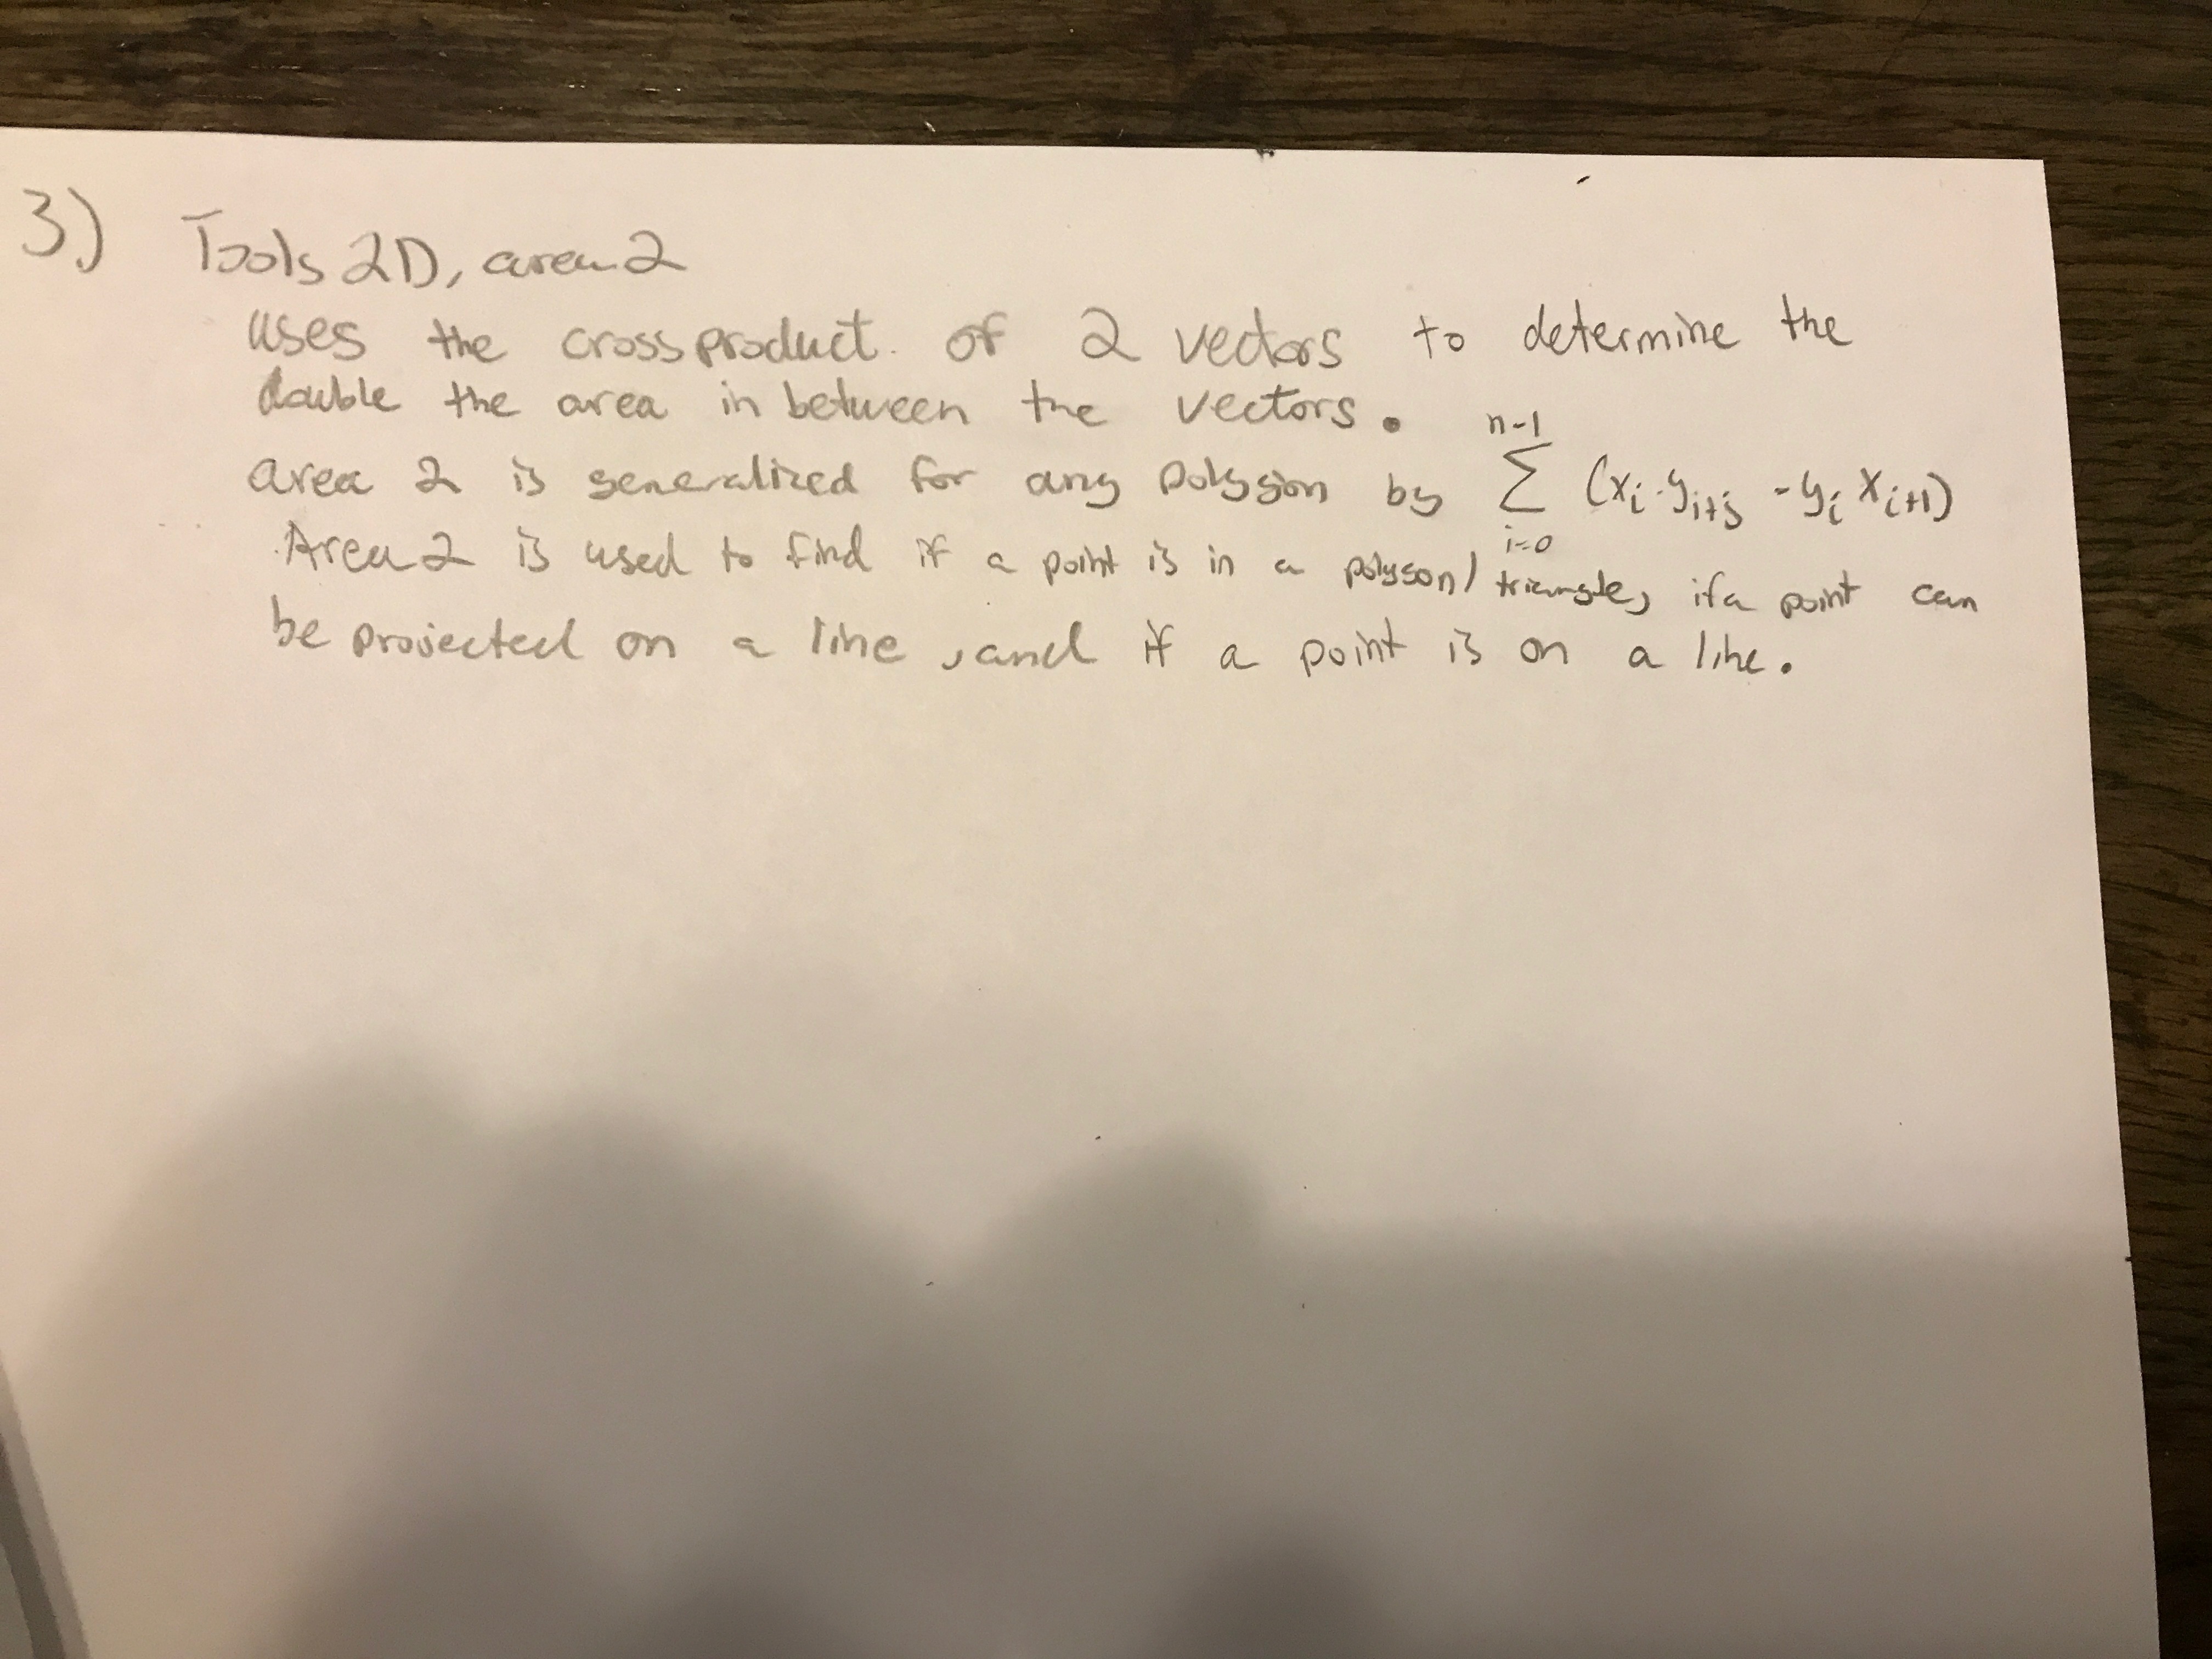 3) Tools2D, area2
uses the cross product of 2 vectors to determine the
double the area in between the vectors.
area 2 is generalized for any polygon by n-1 ∑ i=0 (xi·yi+j - yi xi+1)
Area2 is used to find if a point is in a polygon/triangle, if a point can
be projected on a line, and if a point is on a line.